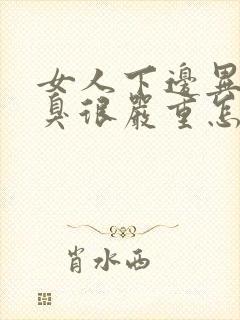 女人下邊異
臭很嚴重怎
肖水西